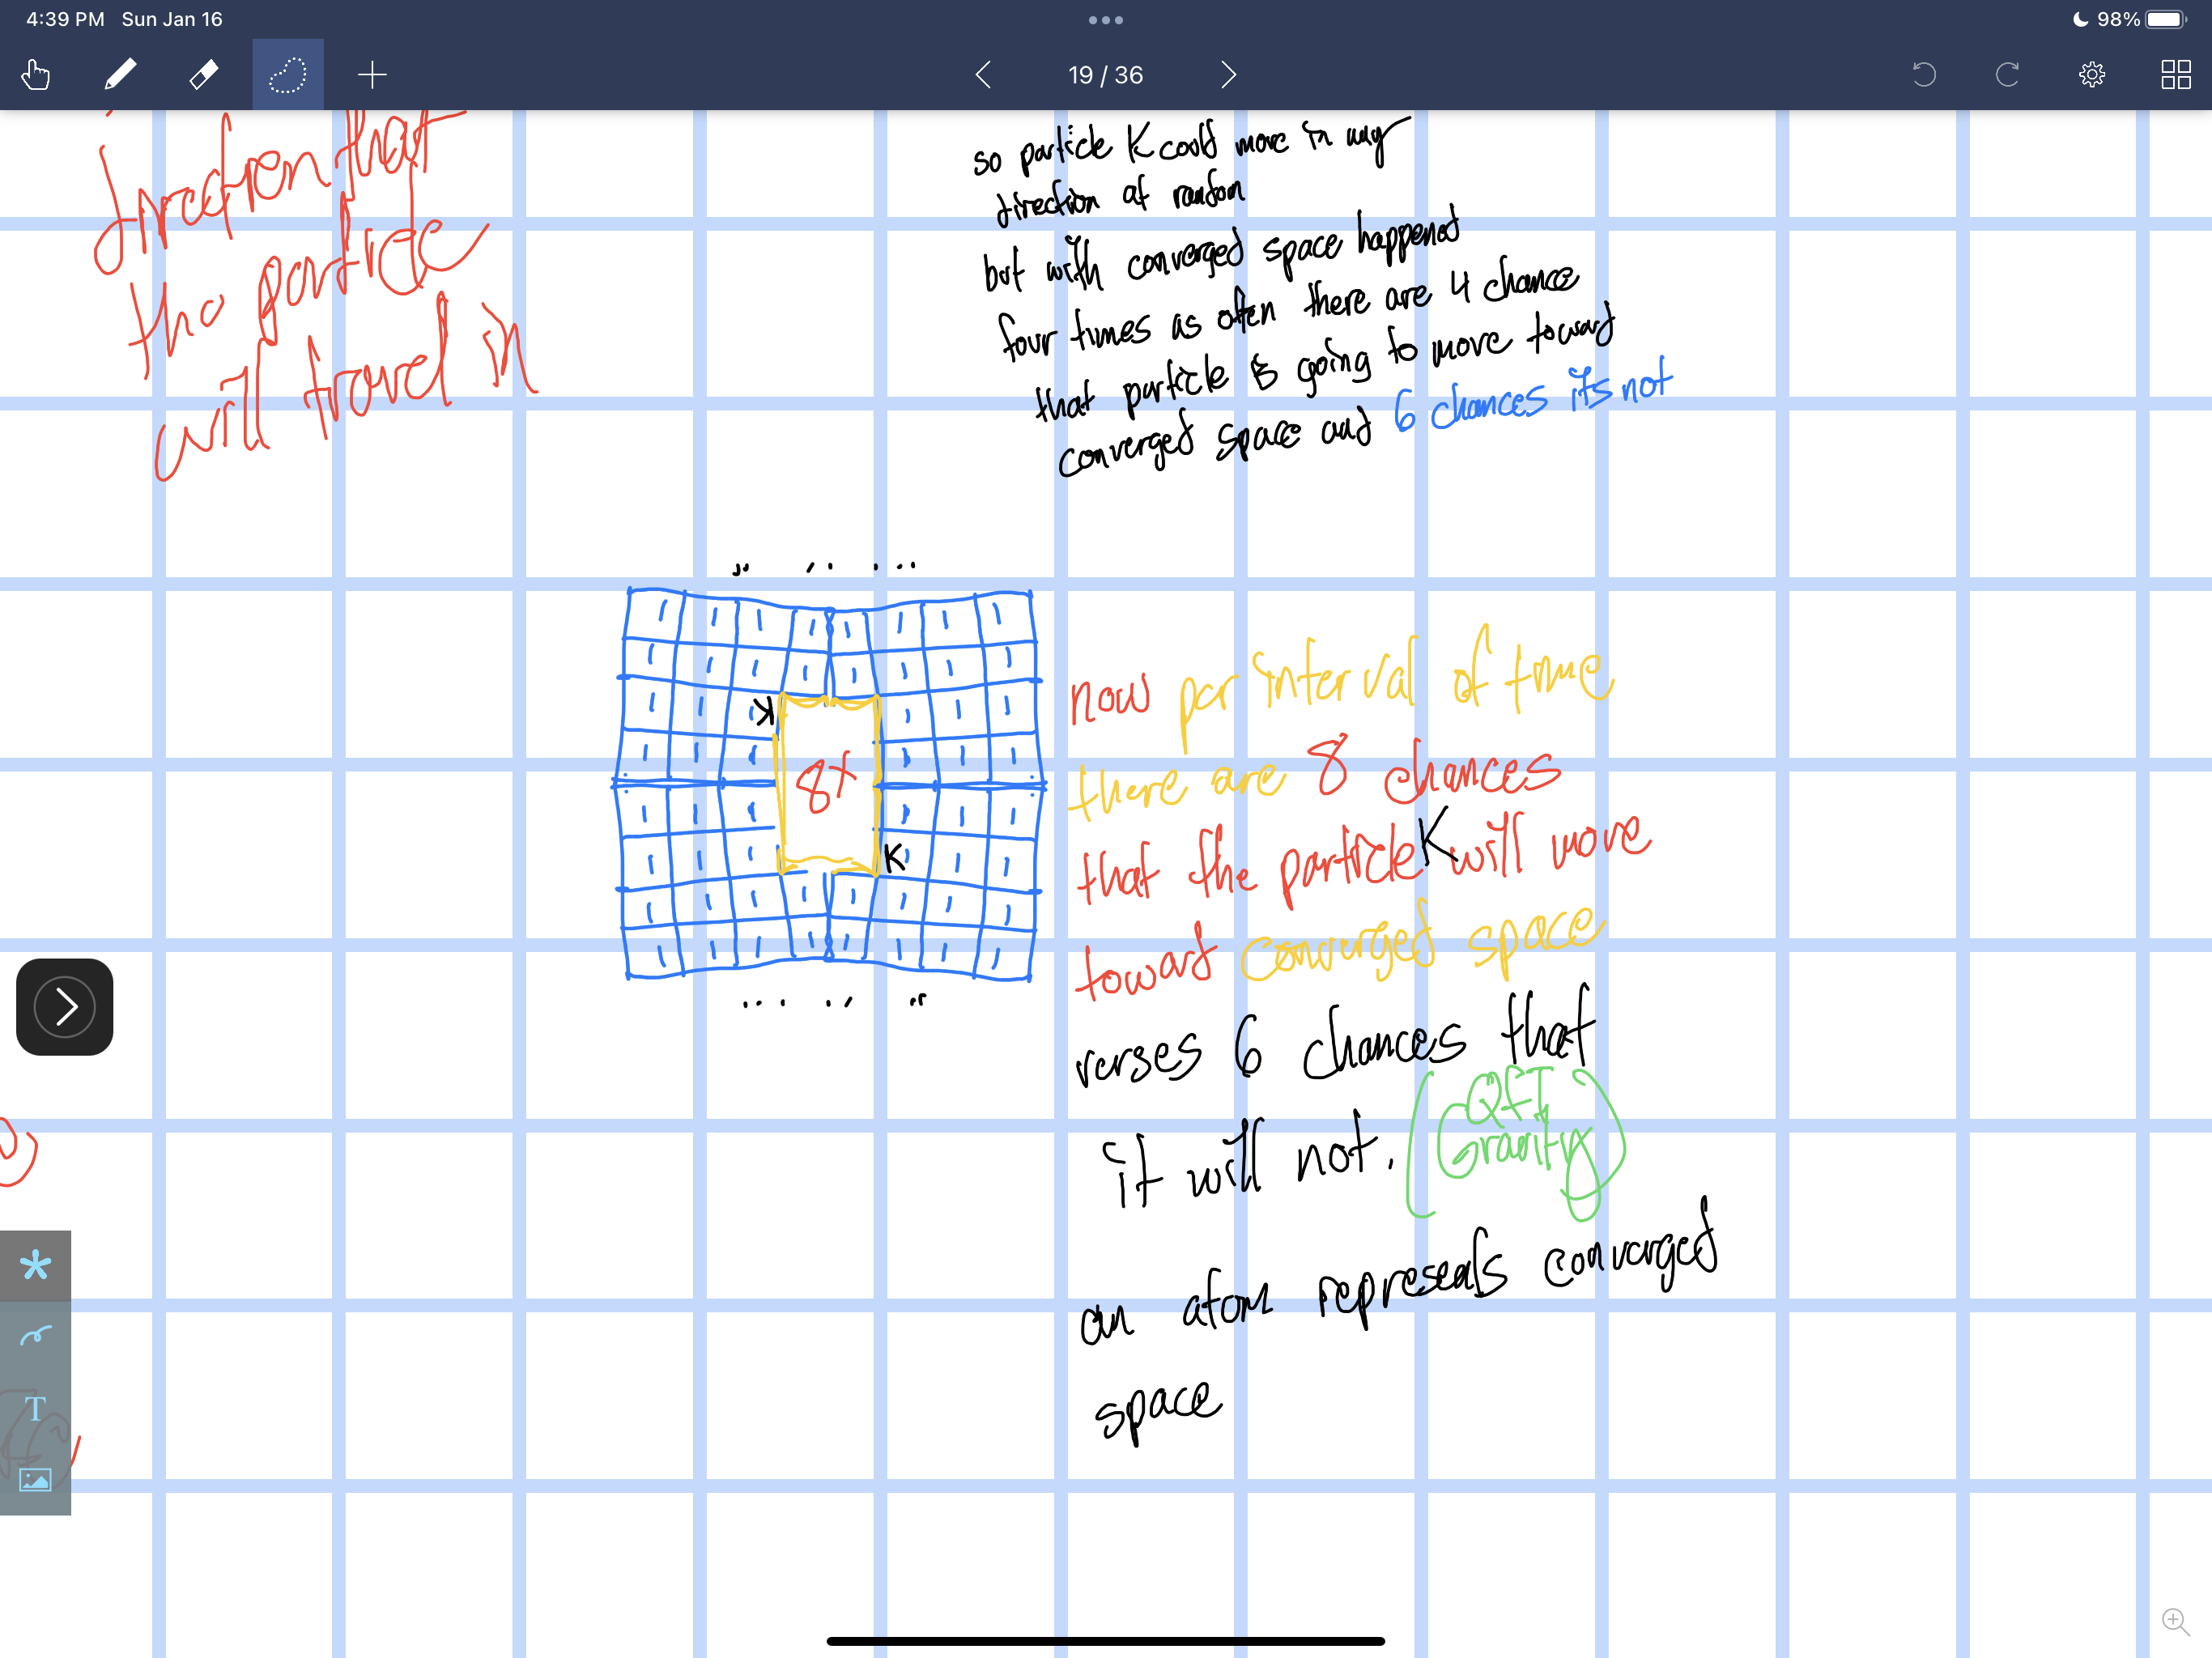 4:39 PM Sun Jan 16
98%
19 / 36
direction that
the partice
will travel in
so particle K could move in any
direction at random
but with converged space happend
four times as often there are 4 chance
that particle is going to move toward
converged space and 6 chances its not
K
8t
K
now per interval of time
there are 8 chances
that the particle K will move
toward converged space
verses 6 chances that
it will not. (
Gravity)
an atom represents converged
space
T